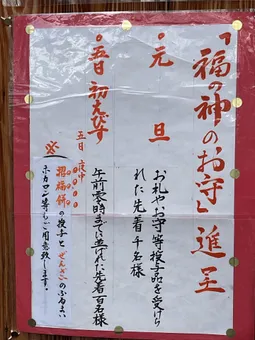 「福の神のお守」進呈
○元旦
お札やお守等授与品を受けら
れた先着千名様
○五日 初えびす
午前零時までに並ばれた先着百名様
※ 五日 夜中
招福餅の授与とぜんざいのふるまい
ホカロン等もご用意致します。